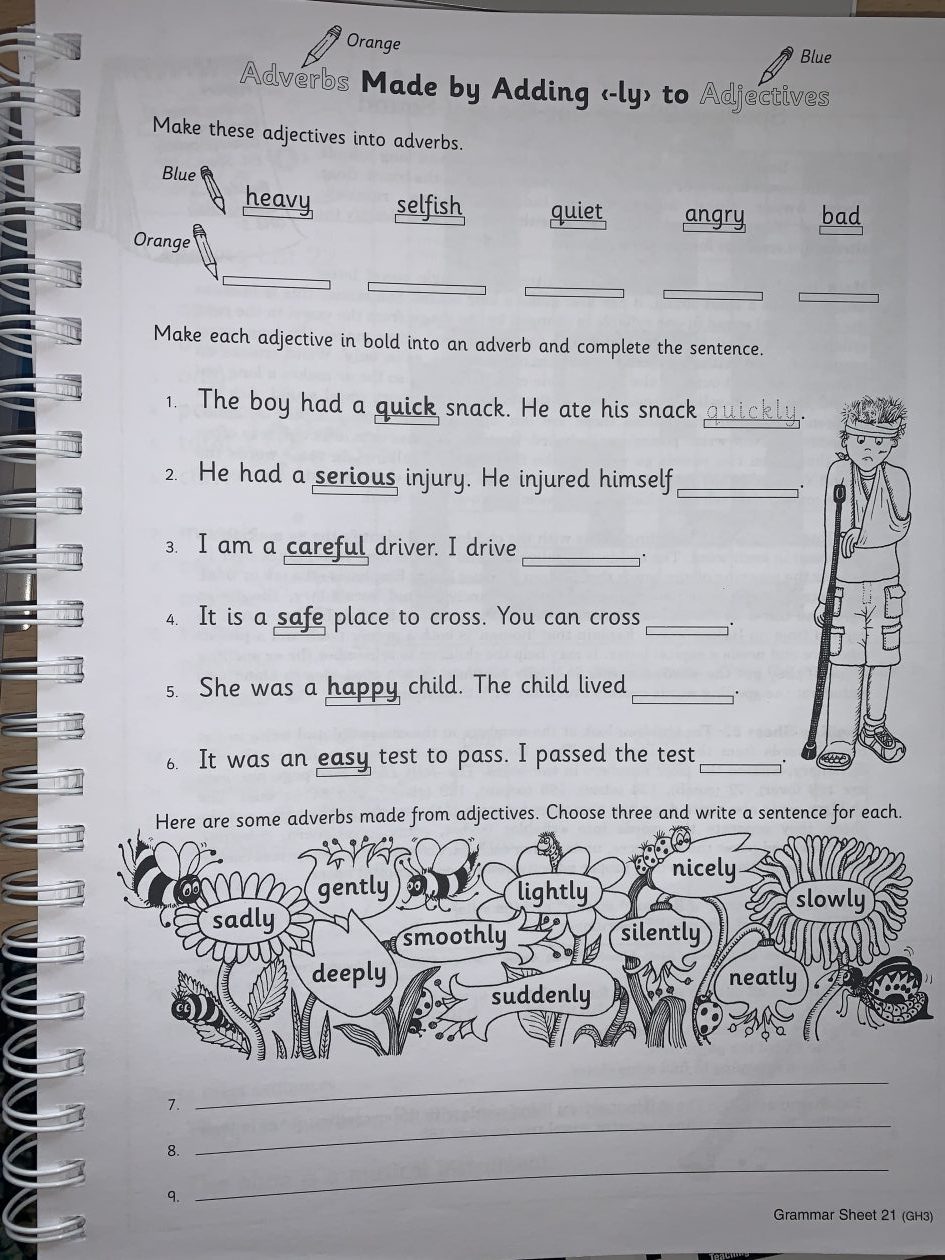 Orange
Blue
Adverbs Made by Adding ‹-ly› to Adjectives
Make these adjectives into adverbs.
Blue heavy selfish quiet angry bad
Orange
Make each adjective in bold into an adverb and complete the sentence.
1. The boy had a quick snack. He ate his snack quickly.
2. He had a serious injury. He injured himself .
3. I am a careful driver. I drive .
4. It is a safe place to cross. You can cross .
5. She was a happy child. The child lived .
6. It was an easy test to pass. I passed the test .
Here are some adverbs made from adjectives. Choose three and write a sentence for each.
sadly
gently
lightly
nicely
slowly
smoothly
silently
deeply
suddenly
neatly
7.
8.
9.
Grammar Sheet 21 (GH3)